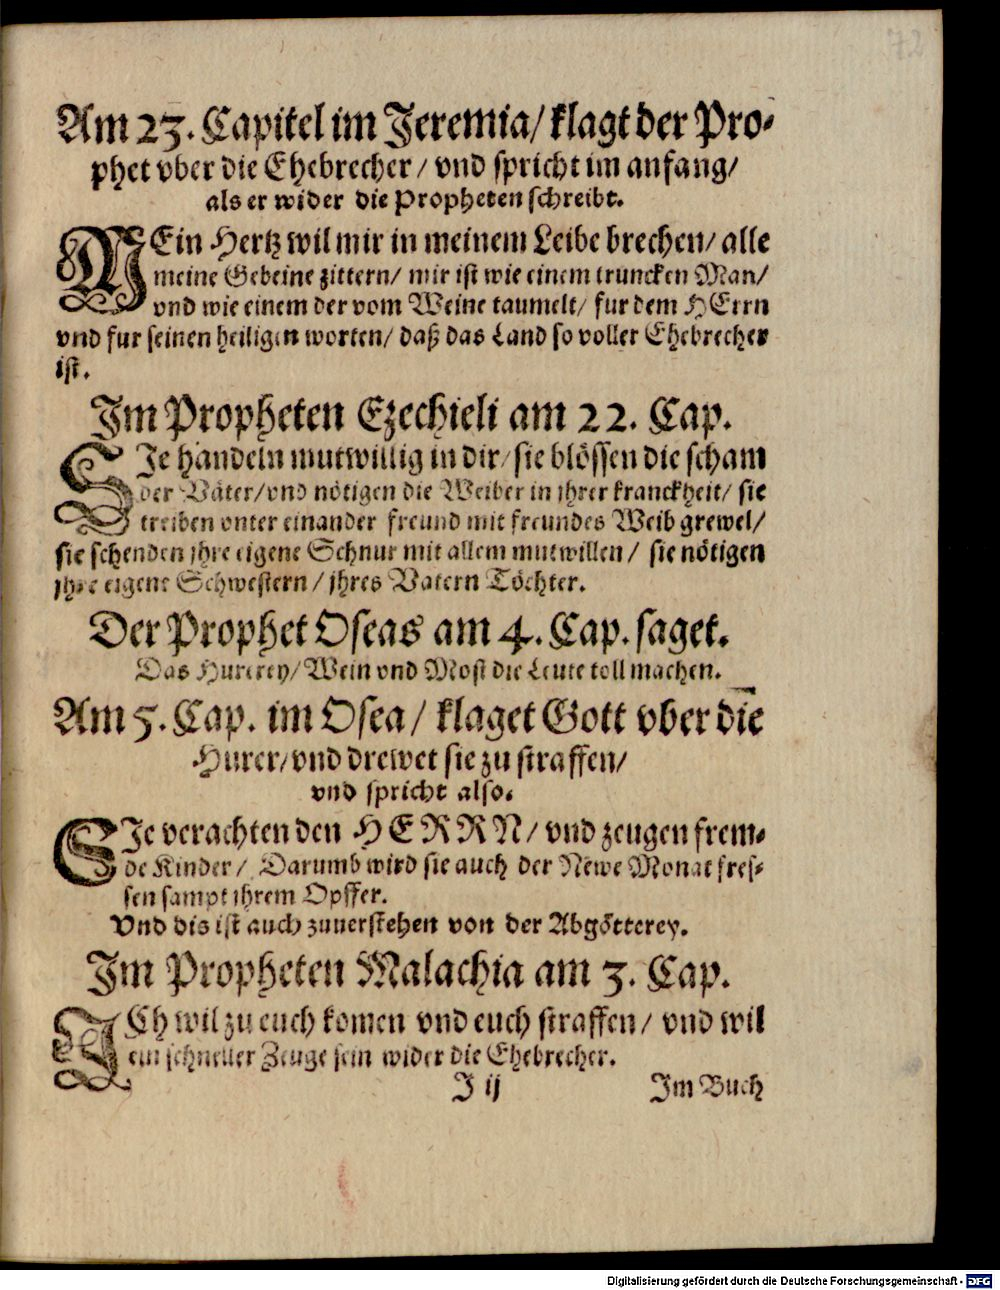 72
Am 23. Capitel im Jeremia/ klagt der Pro-
phet vber die Ehebrecher/ vnd spricht im anfang/
als er wider die Propheten schreibt.
MEin Hertz wil mir in meinem Leibe brechen/ alle
meine Gebeine zittern/ mir ist wie einem truncken Man/
vnd wie einem der vom Weine taumelt/ fur dem HErrn
vnd fur seinen heiligen worten/ daß das Land so voller Ehebrecher
ist.
Im Propheten Ezechieli am 22. Cap.
SIe handeln mutwillig in dir/ sie blössen die scham
der Väter/ vnd nötigen die Weiber in jhrer kranckheit/ sie
treiben vnter einander freund mit freundes Weib grewel/
sie schenden jhre eigene Schnur mit allem mutwillen/ sie nötigen
jhre eigene Schwestern/ jhres Vatern Töchter.
Der Prophet Oseas am 4. Cap. saget.
Das Hurerey/ Wein vnd Most die Leute toll machen.
Am 5. Cap. im Osea/ klaget Gott vber die
Hurer/ vnd drewet sie zu straffen/
vnd spricht also.
SIe verachten den HERRN/ vnd zeugen frem-
de Kinder/ Darumb wird sie auch der Newe Monat fres-
sen sampt jhrem Opffer.
Vnd dis ist auch zuuerstehen von der Abgötterey.
Im Propheten Malachia am 3. Cap.
ICh wil zu euch komen vnd euch straffen/ vnd wil
ein schneller Zeuge sein wider die Ehebrecher.
J ij
Im Buch
Digitalisierung gefördert durch die Deutsche Forschungsgemeinschaft - DFG